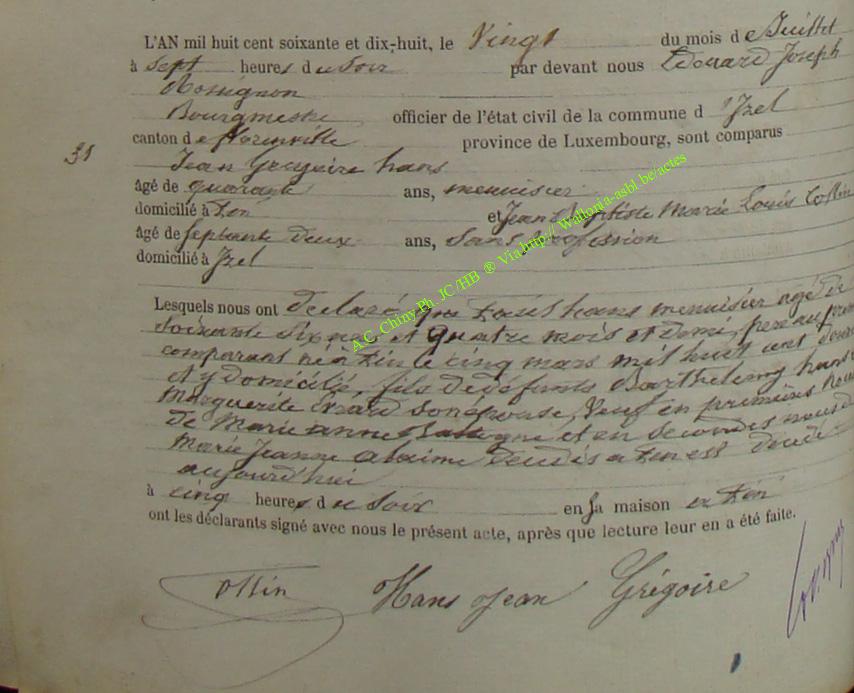 L'AN mil huit cent soixante et dix-huit, le Vingt du mois de Juillet
à sept heures du Soir par devant nous Edouard Joseph
Rossignon
Bourgmestre officier de l'état civil de la commune d'Izel
canton de florenville province de Luxembourg, sont comparus
31
Jean Grégoire hans
âgé de quarante ans, menuisier
domicilié à et Jean Baptiste Marie Louis Collin
âgé de septante deux ans, Sans profession
domicilié à Izel
Lesquels nous ont declaré que hans menuisier agé de
soixante six ans et quatre mois et demi, pere au premier
comparant né à le cinq mars mil huit cent douze
et y domicilié, fils de défunts Barthelemy hans
Marguerite son épouse, Veuf en premières
de Marie anne et en Secondes noces de
Marie Jeanne est décédé
aujourd'hui
à cinq heures du Soir en sa maison
ont les déclarants signé avec nous le présent acte, après que lecture leur en a été faite.
Collin Hans Jean Grégoire
A.C. Chiny Ph. JC/HB ® Via http:// Wallonia-asbl.be/actes